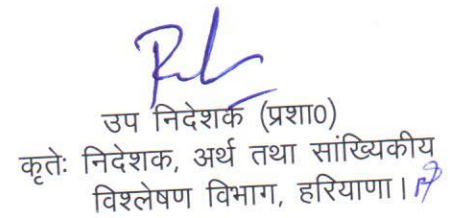 उप निदेशक (प्रशा0)
कृतेः निदेशक, अर्थ तथा सांख्यिकीय
विश्लेषण विभाग, हरियाणा।